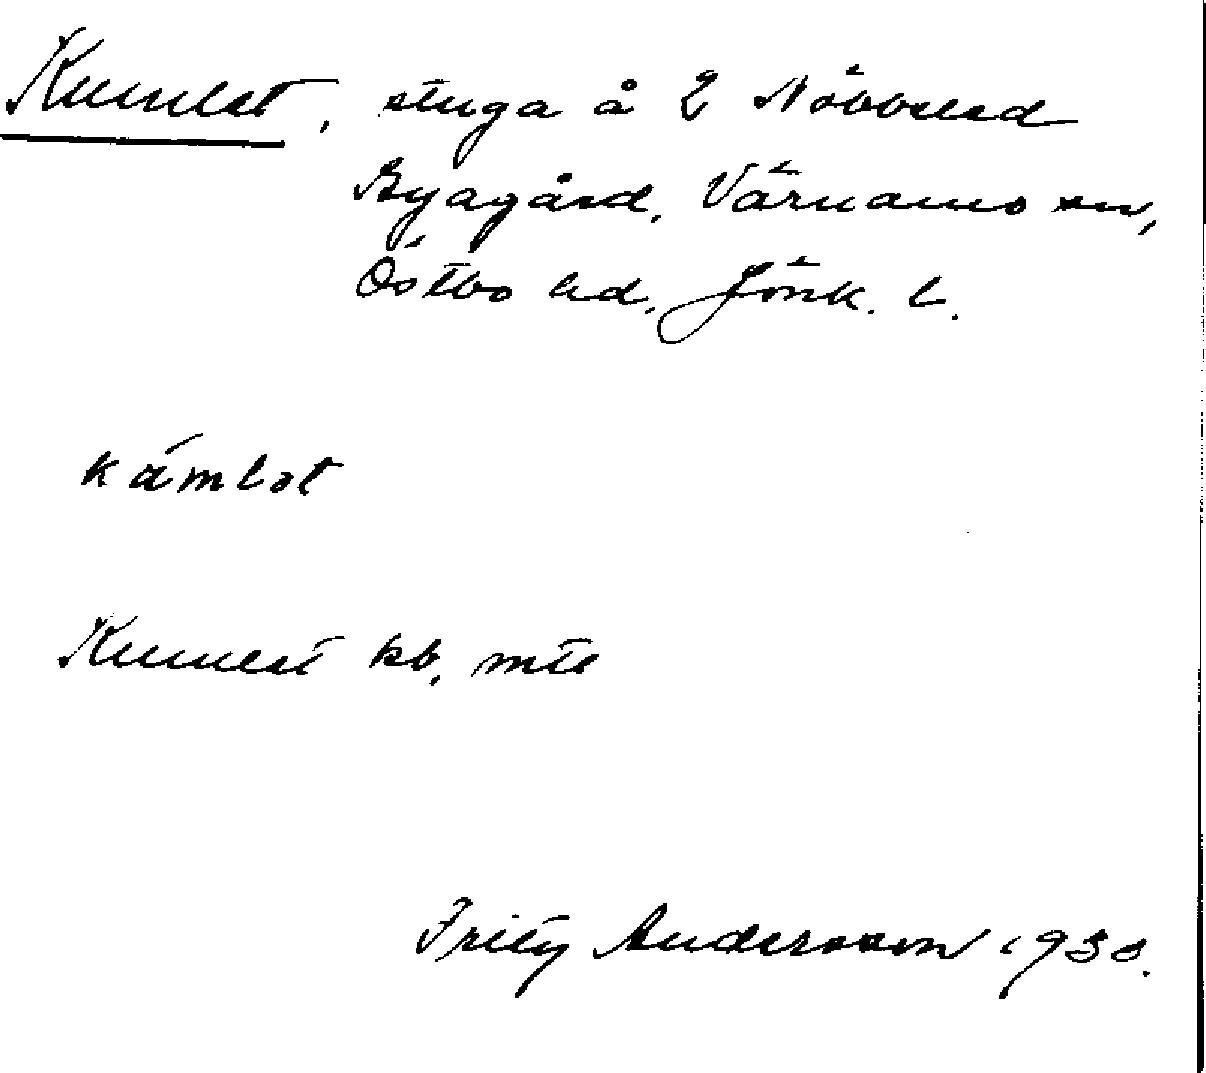 Kumlet, stuga å 2 Nöbbeled
Byagård, Värnamo sn,
Östbo hd. Jönk. l.
kámlot
Kumlet kb. mtl
Fritz Andersson 1930.